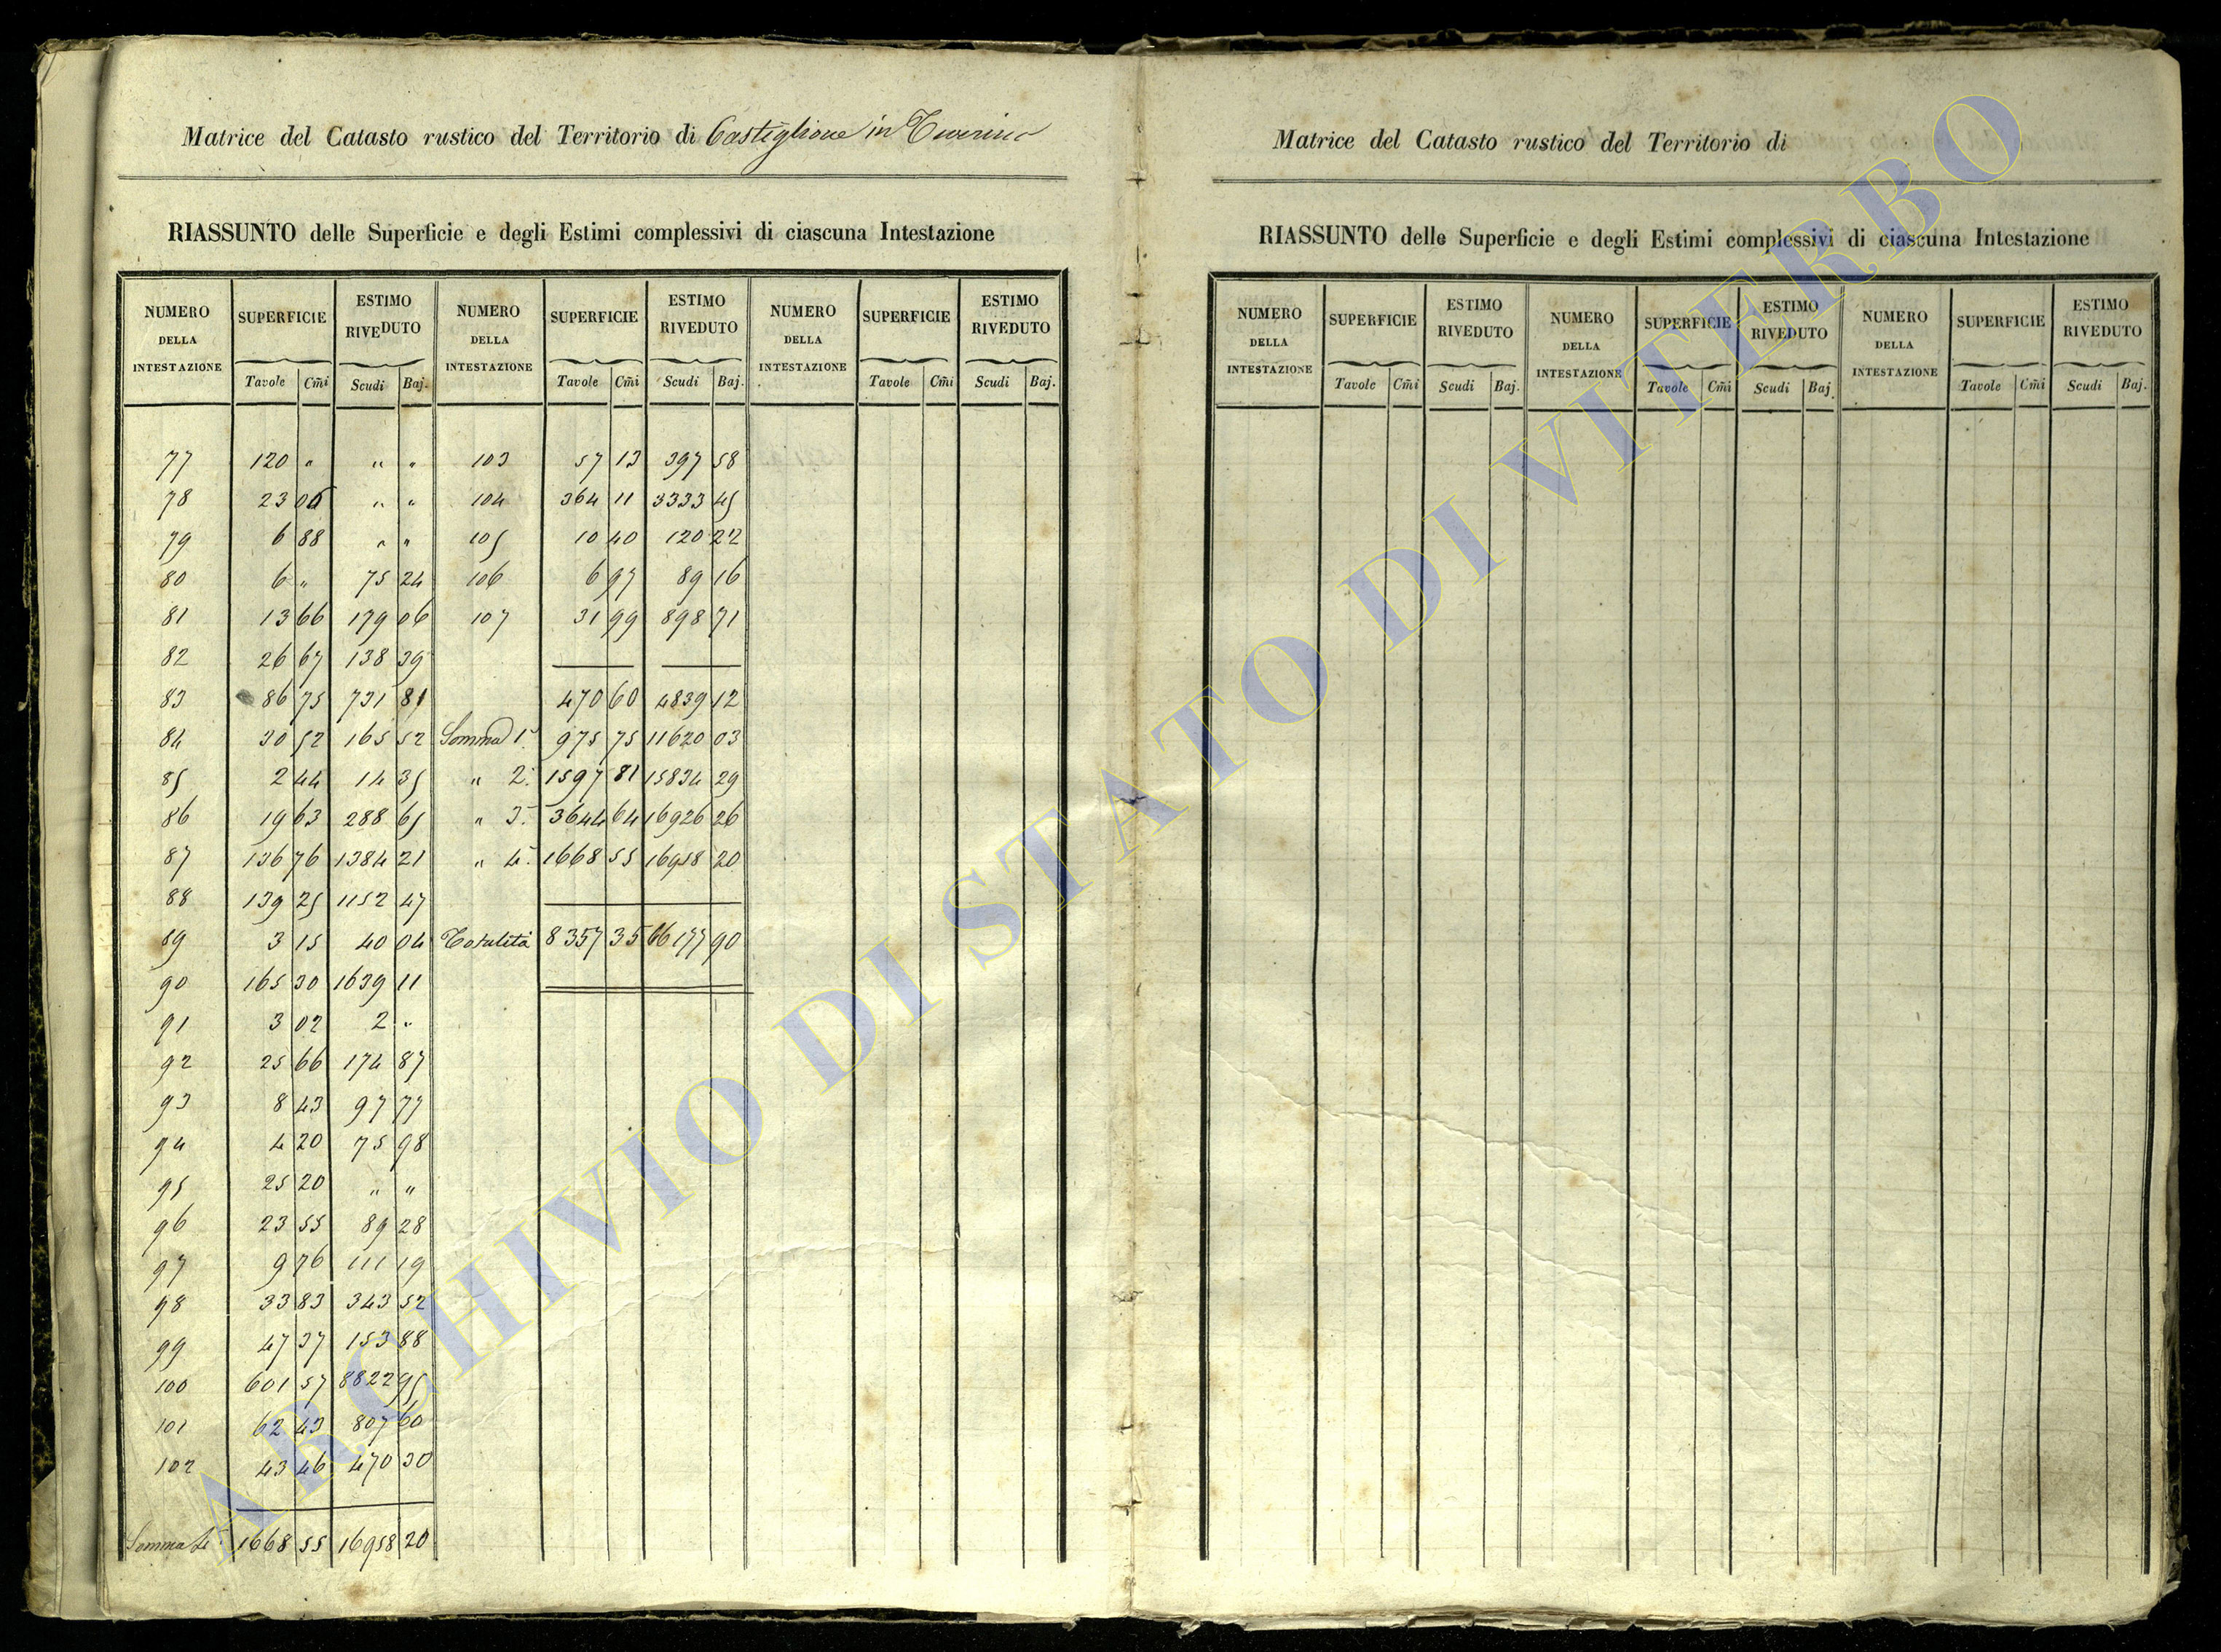 Matrice del Catasto rustico del Territorio di Castiglione in Teverina
RIASSUNTO delle Superficie e degli Estimi complessivi di ciascuna Intestazione
NUMERO DELLA INTESTAZIONE SUPERFICIE ESTIMO RIVEDUTO NUMERO DELLA INTESTAZIONE SUPERFICIE ESTIMO RIVEDUTO NUMERO DELLA INTESTAZIONE SUPERFICIE ESTIMO RIVEDUTO
Tavole Cmi Scudi Baj. Tavole Cmi Scudi Baj. Tavole Cmi Scudi Baj.
77 120 " " " 103 57 13 397 58
78 23 06 " " 104 364 11 3333 45
79 6 88 " " 105 10 40 120 22
80 6 " 75 24 106 6 97 89 16
81 13 66 179 06 107 31 99 898 71
82 26 67 138 39
83 86 75 731 81 470 60 4839 12
84 30 52 165 52 Somma 1a. 975 75 11620 03
85 2 44 14 35 " 2a. 1597 81 15834 29
86 19 63 288 65 " 3a. 3644 64 16926 26
87 136 76 1384 21 " 4a. 1668 55 16958 20
88 139 25 1152 47
89 3 15 40 04 Totalità 8357 35 66177 90
90 165 30 1639 11
91 3 02 2 "
92 25 66 174 87
93 8 43 97 77
94 4 20 75 98
95 25 20 " "
96 23 55 89 28
97 9 76 111 19
98 33 83 343 52
99 47 37 153 88
100 601 57 8822 95
101 62 43 807 60
102 43 46 470 30
Somma 4a 1668 55 16958 20
Matrice del Catasto rustico del Territorio di
RIASSUNTO delle Superficie e degli Estimi complessivi di ciascuna Intestazione
NUMERO DELLA INTESTAZIONE SUPERFICIE ESTIMO RIVEDUTO NUMERO DELLA INTESTAZIONE SUPERFICIE ESTIMO RIVEDUTO NUMERO DELLA INTESTAZIONE SUPERFICIE ESTIMO RIVEDUTO
Tavole Cmi Scudi Baj. Tavole Cmi Scudi Baj. Tavole Cmi Scudi Baj.
ARCHIVIO DI STATO DI VITERBO